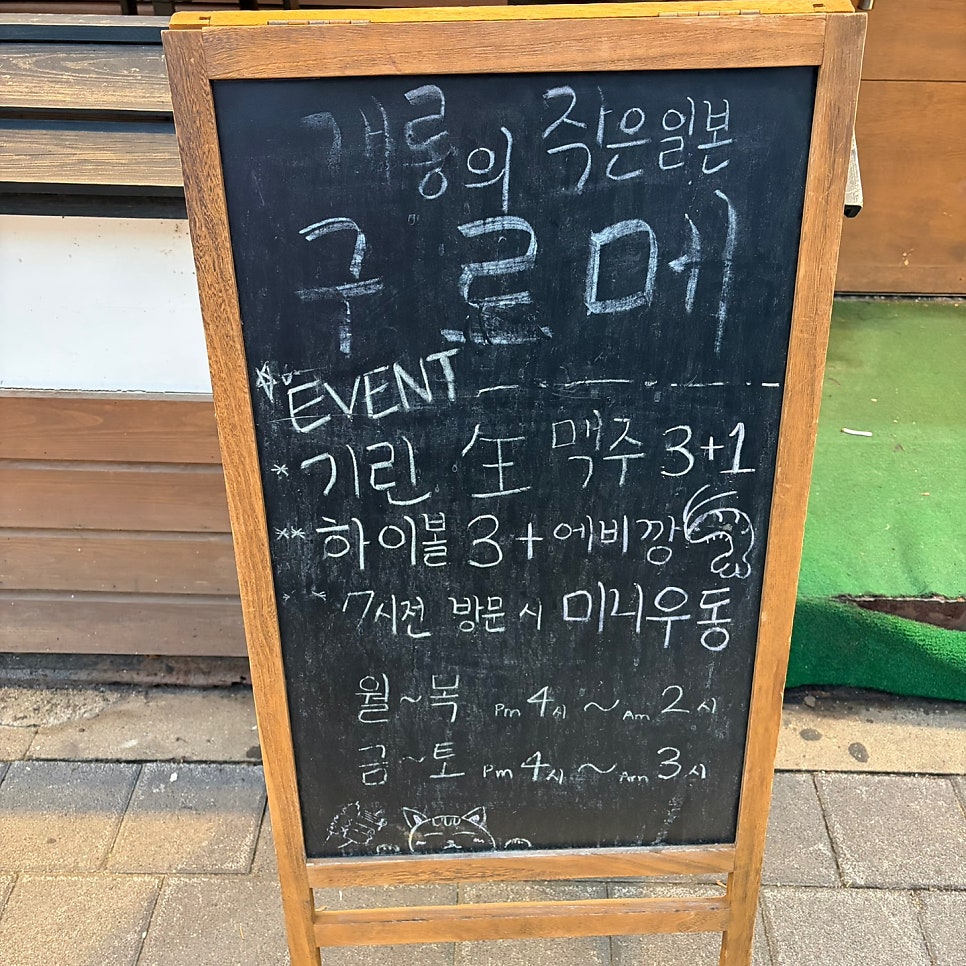 개롱의 작은일본
구르메
* EVENT
* 기린 生 맥주 3+1
** 하이볼 3 + 에비깡
7시전 방문 시 미니우동
월~목 Pm 4시 ~ Am 2시
금~토 Pm 4시 ~ Am 3시